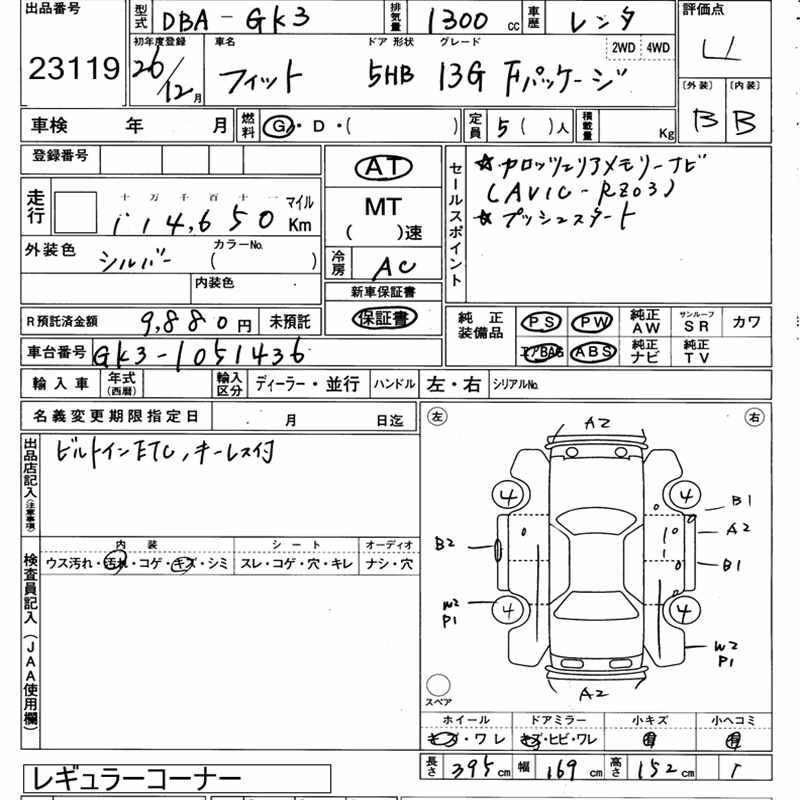 出品番号 23119
型式 DBA-GK3 排気量 1300 cc 車歴 レンタ 評価点 4
初年度登録 26/12月 車名 フィット ドア 形状 5HB グレード 13G Fパッケージ 2WD 4WD
〔外装〕 B 〔内装〕 B
車検 年 月 燃料 G・D・( ) 定員 5 ( )人 積載量 Kg
登録番号 AT セールスポイント ☆カロッツェリアメモリーナビ
(AVIC-RZ03)
☆プッシュスタート
走行 十万千百十一 114,650 マイル Km
MT ( )速
外装色 シルバー カラーNo. ( )
冷房 AC
内装色 新車保証書
R預託済金額 9,880円 未預託 保証書
純正装備品 PS PW 純正AW サンルーフSR カワ
車台番号 GK3-1051436 エアBAG ABS 純正ナビ 純正TV
輸入車 年式(西暦) 輸入区分 ディーラー・並行 ハンドル 左・右 シリアルNo.
名義変更期限指定日 月 日迄
出品店記入(注意事項) ビルトインETC,キーレス付
内装 シート オーディオ
ウス汚れ・汚れ・コゲ・キズ・シミ スレ・コゲ・穴・キレ ナシ・穴
検査員記入(JAA使用欄)
左 右
A2
4 4
B1
A2
B2
B1
4 4
W2
P1
W2
P1
A2
スペア
ホイール ドアミラー 小キズ 小ヘコミ
キズ・ワレ キズ・ヒビ・ワレ 有 有
長さ 395cm 幅 169cm 高さ 152cm
レギュラーコーナー